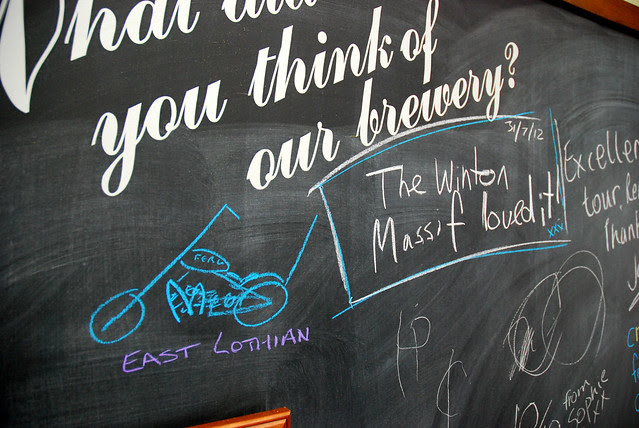 What did
you think of
our brewery?
31/7/12
The Winton
Massif loved it!!
xxx
Excellen
tour, Re
Thank
FERG
EAST LOTHIAN
from
Sophie
xx